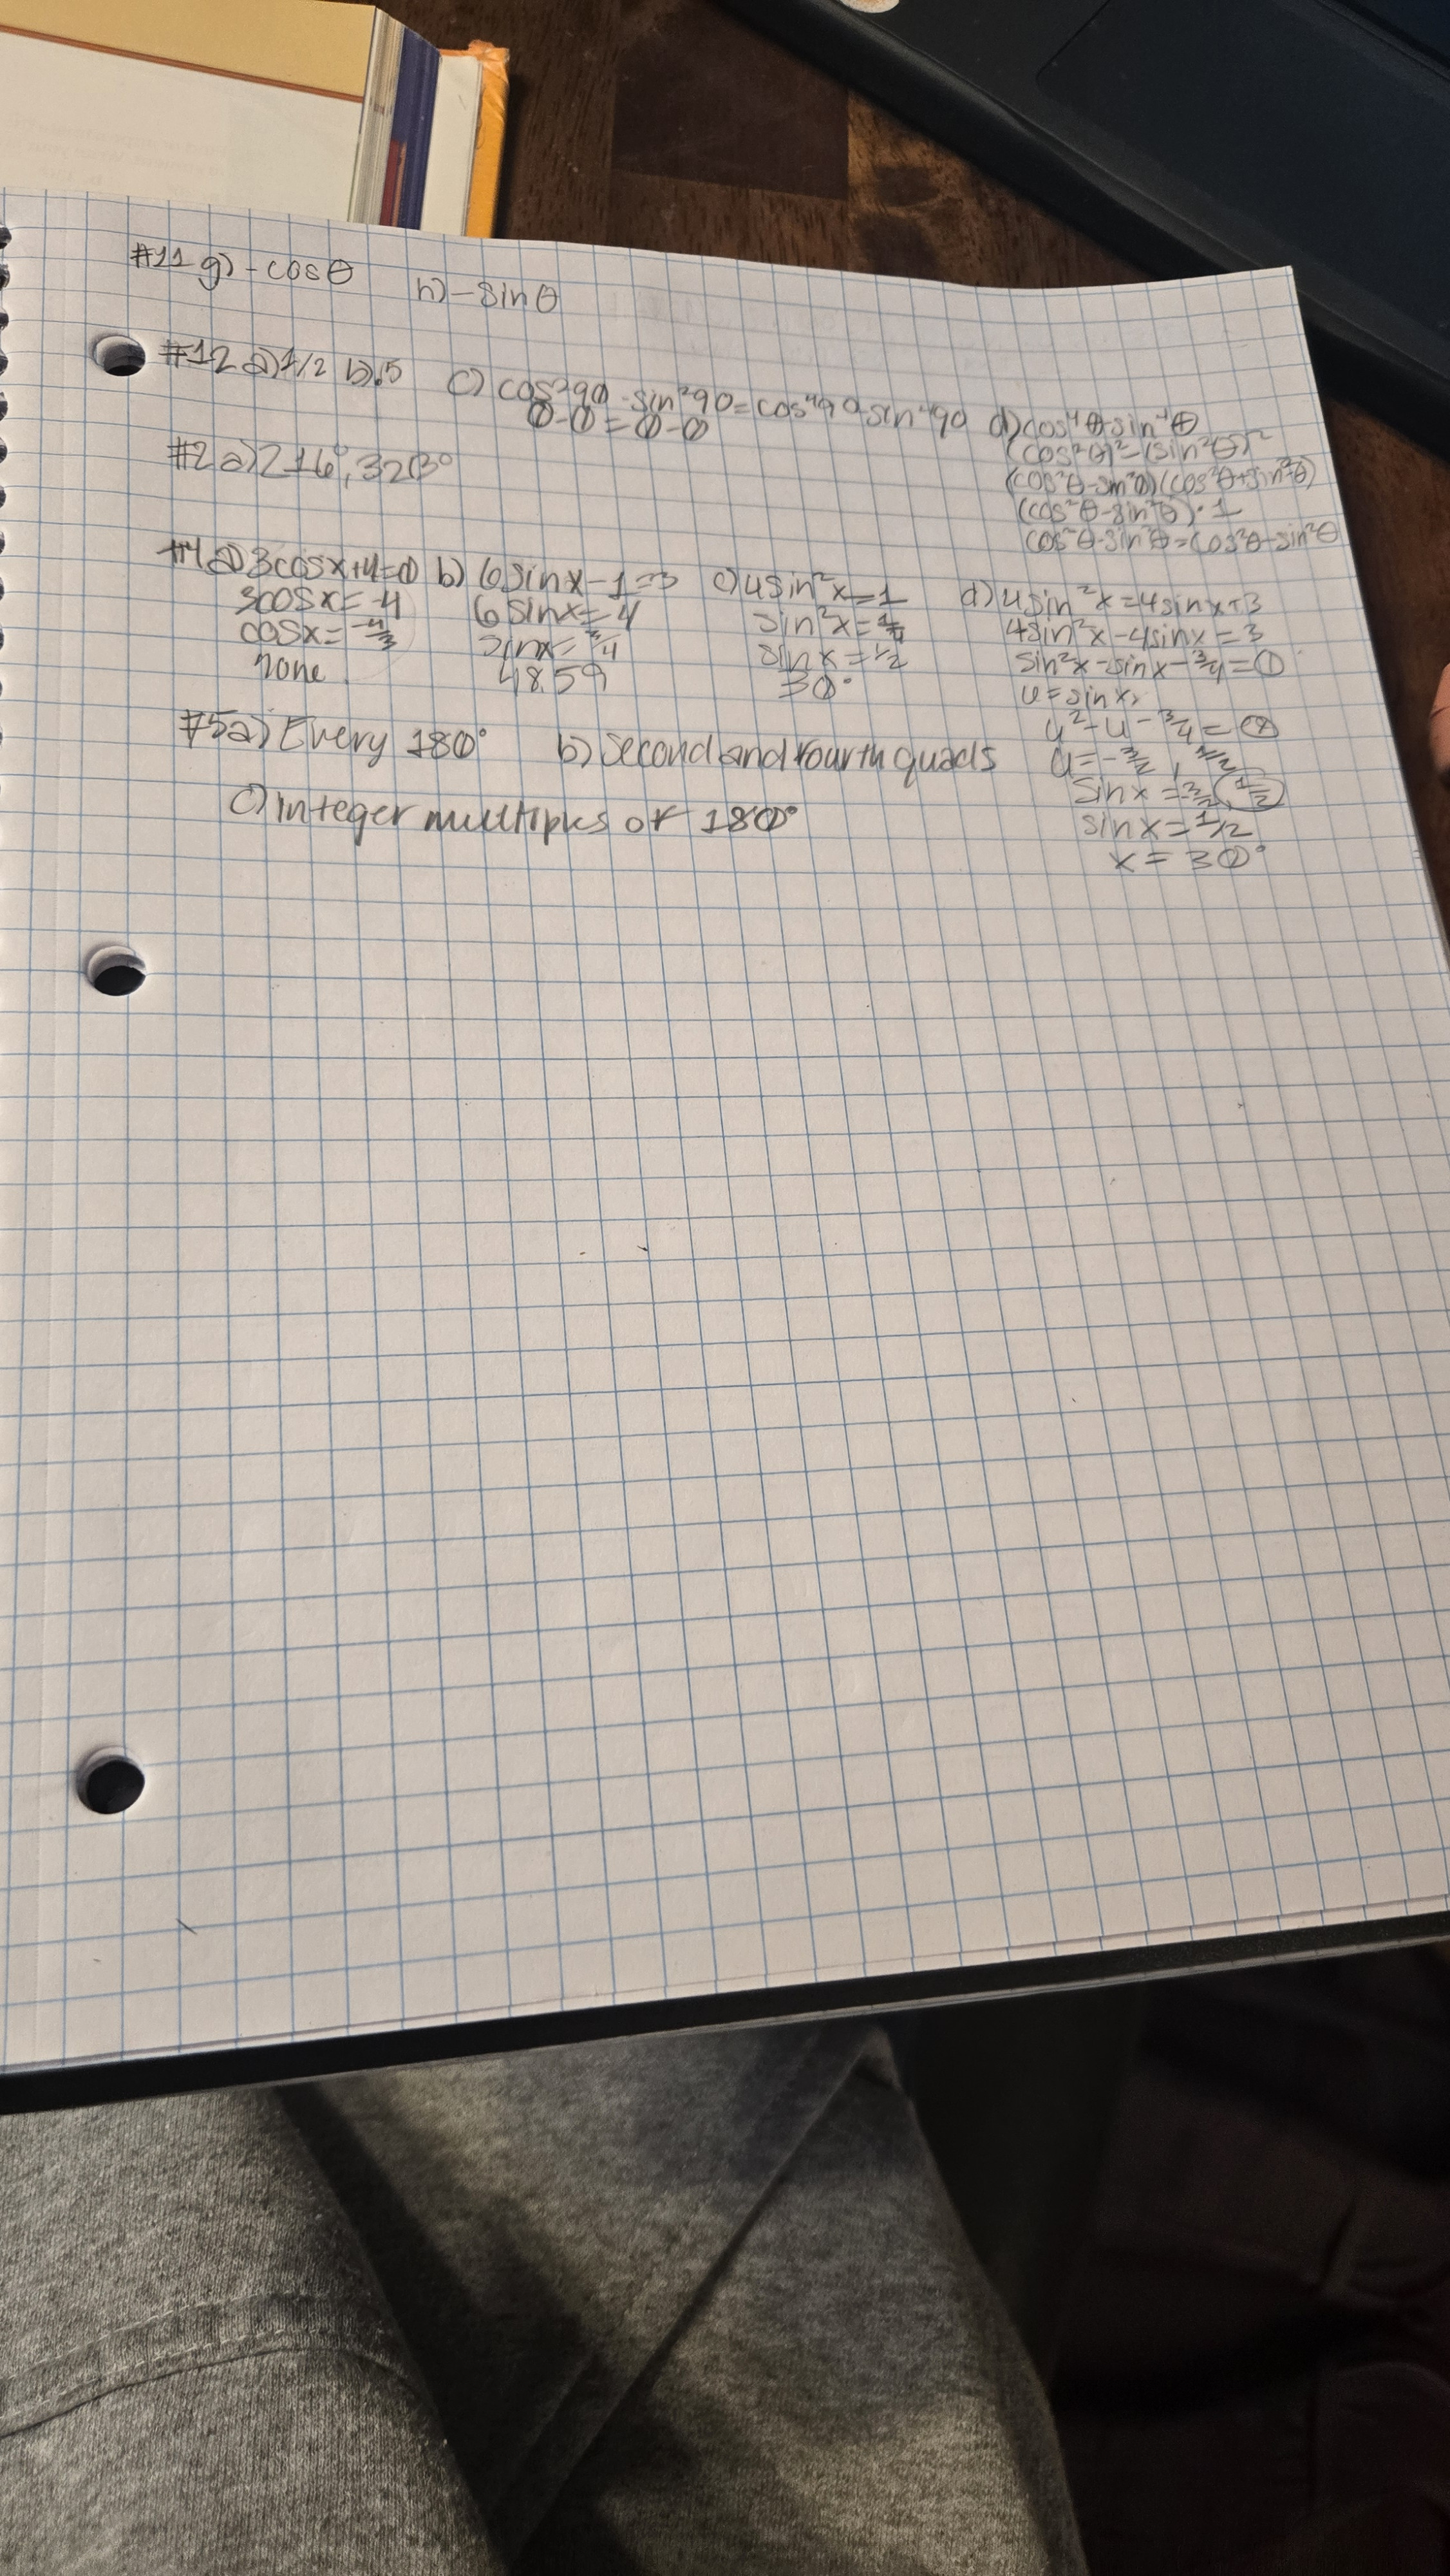 #11 g) -cosθ h) -sinθ
#12 a) 1/2 b) .5 c) cos²90 - sin²90 = cos⁴90 - sin⁴90
0-0 = 0-0
d) cos⁴θ-sin⁴θ
(cos²θ)²-(sin²θ)²
(cos²θ-sin²θ)(cos²θ+sin²θ)
(cos²θ-sin²θ)·1
cos²θ-sin²θ=cos²θ-sin²θ
#2 a) 216°, 323°
#4 a) 3cosx+4=0
3cosx=-4
cosx=-4/3
none
b) 6sinx-1=3
6sinx=4
sinx=
48.59
c) 4sin²x=1
sin²x=1/4
sinx=1/2
30°
d) 4sin²x=4sinx+3
4sin²x-4sinx=3
sin²x-sinx-3/4=0
u=sinx
u²-u-3/4=0
u=-3/2, 1/2
sinx=-3/2, 1/2
sinx=1/2
x=30°
#5 a) Every 180° b) Second and fourth quads
c) Integer multiples of 180°